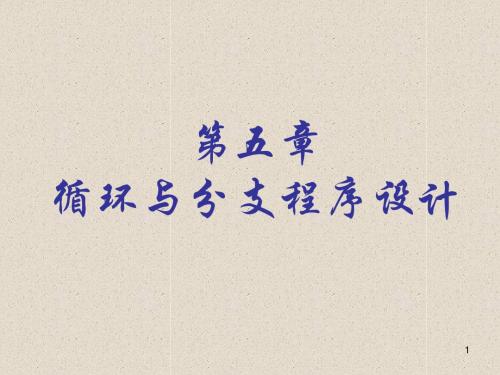 第五章
循环与分支程序设计
1